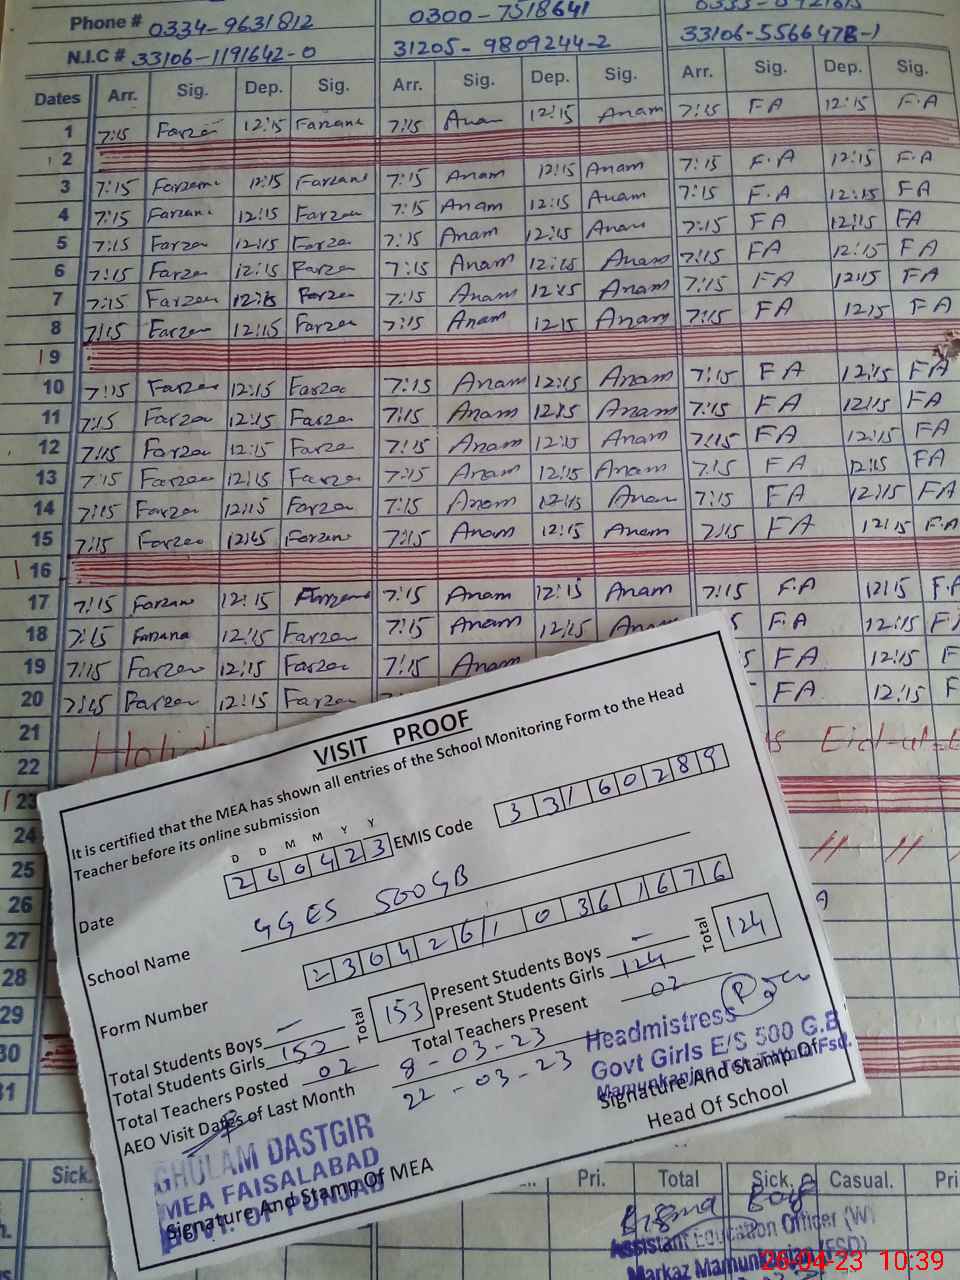 Phone # 0334-9631812 0300-7518641
N.I.C # 33106-1191642-0 31205-9809244-2 33106-5566478-1
Dates Arr. Sig. Dep. Sig. Arr. Sig. Dep. Sig. Arr. Sig. Dep. Sig.
1 7:15 Farzan 12:15 Farzana 7:15 Anam 12:15 Anam 7:15 FA 12:15 F.A
2
3 7:15 Farzana 12:15 Farzana 7:15 Anam 12:15 Anam 7:15 F.A 12:15 F.A
4 7:15 Farzana 12:15 Farzan 7:15 Anam 12:15 Anam 7:15 F.A 12:15 FA
5 7:15 Farzan 12:15 Farzan 7:15 Anam 12:15 Anam 7:15 FA 12:15 FA
6 7:15 Farzan 12:15 Farzan 7:15 Anam 12:15 Anam 7:15 FA 12:15 FA
7 7:15 Farzan 12:15 Farzan 7:15 Anam 12:15 Anam 7:15 FA 12:15 FA
8 7:15 Farzan 12:15 Farzan 7:15 Anam 12:15 Anam 7:15 FA 12:15 FA
9
10 7:15 Farzan 12:15 Farzan 7:15 Anam 12:15 Anam 7:15 FA 12:15 FA
11 7:15 Farzan 12:15 Farzan 7:15 Anam 12:15 Anam 7:15 FA 12:15 FA
12 7:15 Farzan 12:15 Farzan 7:15 Anam 12:15 Anam 7:15 FA 12:15 FA
13 7:15 Farzan 12:15 Farzan 7:15 Anam 12:15 Anam 7:15 FA 12:15 FA
14 7:15 Farzan 12:15 Farzan 7:15 Anam 12:15 Anam 7:15 FA 12:15 FA
15 7:15 Farzan 12:15 Farzana 7:15 Anam 12:15 Anam 7:15 FA 12:15 F.A
16
17 7:15 Farzana 12:15 Farzana 7:15 Anam 12:15 Anam 7:15 F.A 12:15 F.A
18 7:15 Farzana 12:15 Farzan 7:15 Anam 12:15 Anam F.A 12:15
19 7:15 Farzan 12:15 Farzan 7:15 Anam FA 12:15 F
20 7:15 Farzan 12:15 Farzan FA 12:15 F
21 Eid-ul-
22
23
24
25 " "
26
27
28
29
30
31
VISIT PROOF
It is certified that the MEA has shown all entries of the School Monitoring Form to the Head
Teacher before its online submission
D D M M Y Y
Date 260423 EMIS Code 33160289
School Name GGES 500GB
Form Number 23042610361676
Total Students Boys – Total 153 Present Students Boys – Total 124
Total Students Girls 153 Present Students Girls 124
Total Teachers Posted 02 Total Teachers Present 02
AEO Visit Dates of Last Month 8-03-23
22-03-23
Headmistress
Govt Girls E/S 500 G.B
Mamunkanjan
Signature And Stamp Of
Head Of School
GHULAM DASTGIR
MEA FAISALABAD
GOVT. OF PUNJAB
Signature And Stamp Of MEA
Sick. Pri. Total Sick. Casual. Pri
Assistant Education Officer (W)
Markaz Mamunkanjan (FSD)
26-04-23 10:39